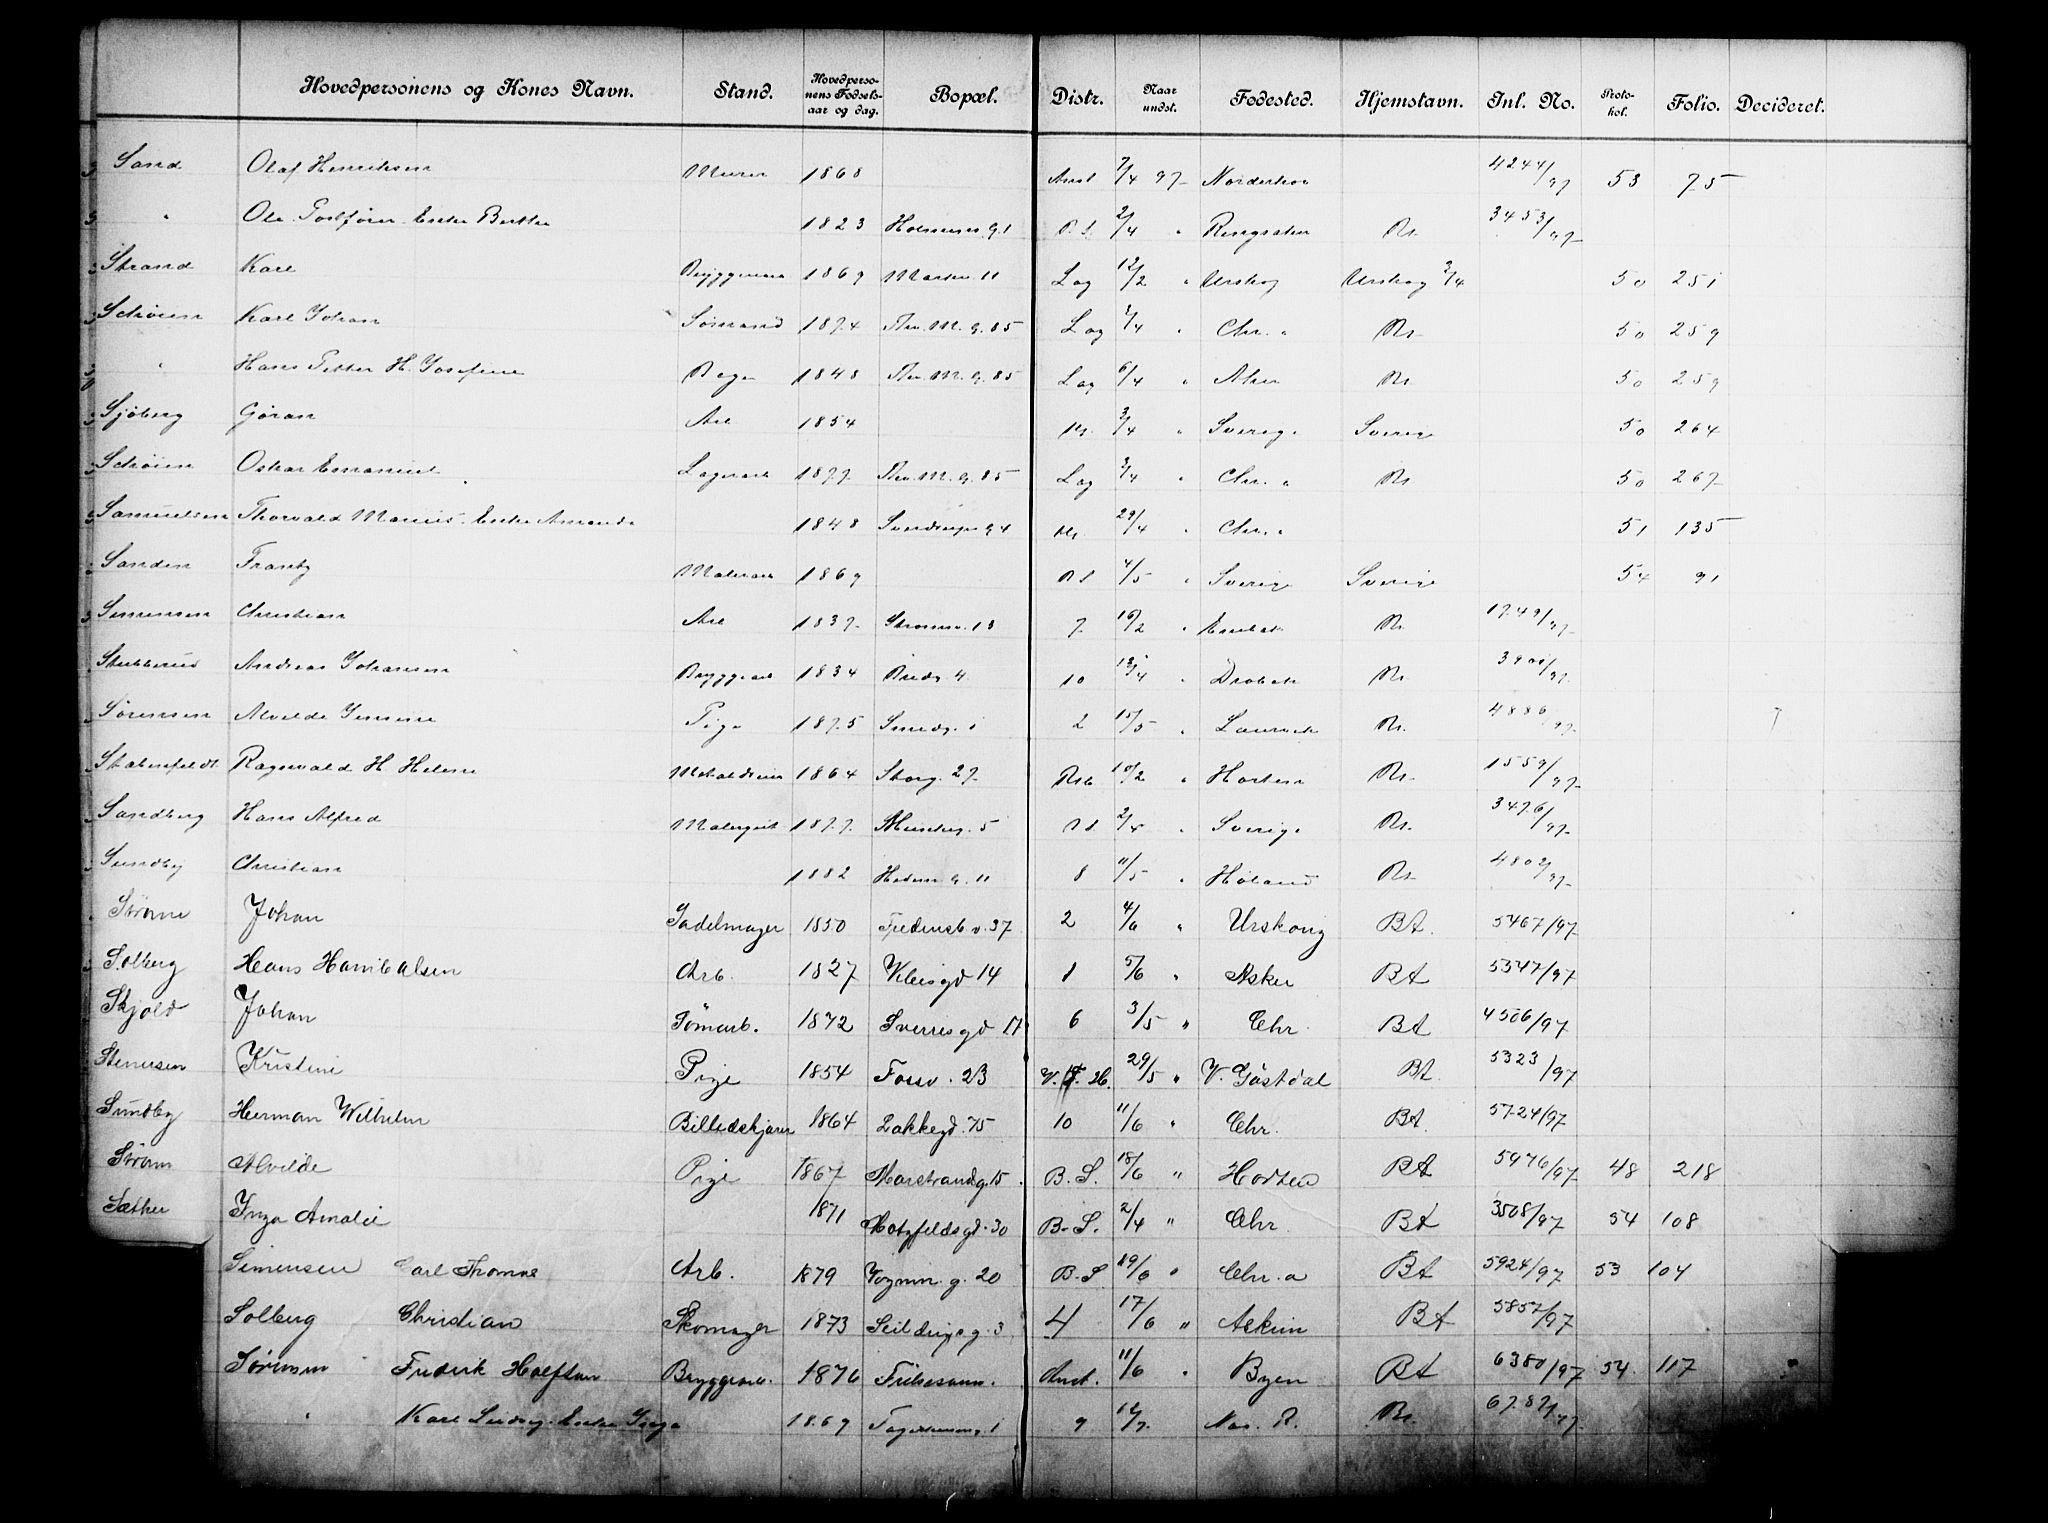 Hovedpersonens og Kones Navn. Stand. Hovedpersonens Fødselsaar og dag. Bopæl. Distr. Naar undst. Fødested. Hjemstavn. Inl. No. Protokol. Folio. Decideret.
Sand Olaf Henriksen Murer 1868 Anst 7/4 97 Norderhov 4244/97 53 75
" Ole 1823 2/4 " Ringsaker Bt. 3453/97
Strand Karl 1869 11 Lag 12/2 " Urskog Urskog 3/4 50 251
Schøien Karl Johan Sømand 1874 Thv. M. g. 85 Lag 1/4 " Chr. a Bt. 50 259
" Hans Petter H. Josefine 1848 Thv. M. g. 85 Lag 6/4 " Aker Bt. 50 259
Sjøberg Gøran Arb 1854 3/4 " Sverige Sverige 50 264
Schøien Oskar Emanuel Lagerarb 1877 Thv. M. g. 85 Lag 3/4 " Chr. a Bt 50 267
Samuelsen Thorvald Marius Enke Amanda 1848 Sverdrups g 4 29/4 " Chr. a 51 135
Sanden Frantz Malerarb 1869 B S 4/5 " Sverige Sverige 54 91
Simensen Christian Arb 1837 Strømsv. 13 7 16/2 " Enebak Bt. 1749/97
Stubberud Andreas Johansen Bryggearb 1834 Bredg 4 10 13/4 " Drøbak Bt. 3901/97
Sørensen Alvilde Jensine Pige 1875 Smedg. 1 2 15/5 " Laurvik Bt. 4886/97
Ragnvald H Helene 1864 Storg. 27 10/2 " Horten Bt. 1559/97
Sandberg Hans Alfred 1877 Munkeg. 5 B S 2/4 " Sverige Bt. 3476/97
Sundby Christian 1882 11 8 11/5 " Høland Bt. 4802/97
Strøm Johan Sadelmager 1850 Fredensb. v. 37 2 4/6 " Urskoug Bt. 5467/97
Solberg Hans Hanibalsen Arb. 1827 14 1 5/6 " Asker Bt 5347/97
Skjold Johan Tømarb. 1872 Sverres gd 17 6 3/5 " Chr. Bt 4506/97
Stenersen Kristine Pige 1854 Fossv. 23 V. F. H. 29/5 " V. Gästdal Bt. 5323/97
Sundby Herman Wilhelm Billedskjærer 1864 Bakkegd. 75 10 11/6 " Chr. Bt. 5724/97
Strøm Alvilde Pige 1867 Marstrandg. 15. B. S. 18/6 " Horten Bt 5976/97 48 218
Sæther Inga Amalie 1871 Hotzfeldsgd. 30 B. S. 2/4 " Chr. Bt 3508/97 54 108
Simensen Carl Thomas Arb. 1879 Vognm. g. 20 B. S 19/6 " Chr. a Bt 5924/97 53 104
Solberg Christian Skomager 1873 Seildugsg. 3 4 17/6 " Askim Bt 5857/97
Sørensen Fredrik Halfdan Bryggearb. 1876 Anst. 11/6 " Byen Bt 6380/97 54 117
" Karl Ludvig Enke Inga 1869 9 12/7 Nes. R. Bt. 6782/97